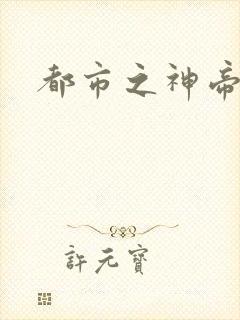 都市之神帝
許元寶